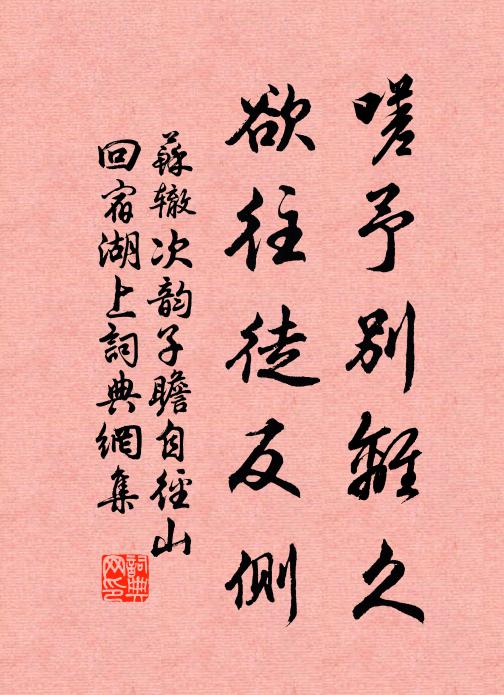 嗟予别離久
欲往徒反側
蘇辙次韵子瞻自徑山
回宿湖上詞典網集
詞典
网印